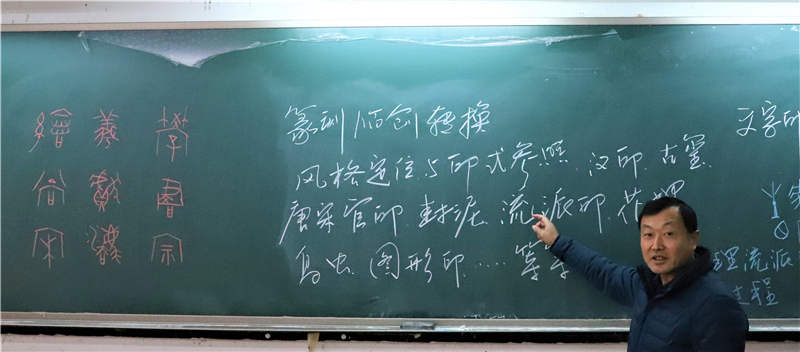 學書宗
羲獻
繪尚宋
篆刻临创转换
风格定位与印式参照. 汉印. 古玺.
唐宋官印. 封泥. 流派印. 花押
鸟虫. 图形印......等等
文字的
理流派
过程